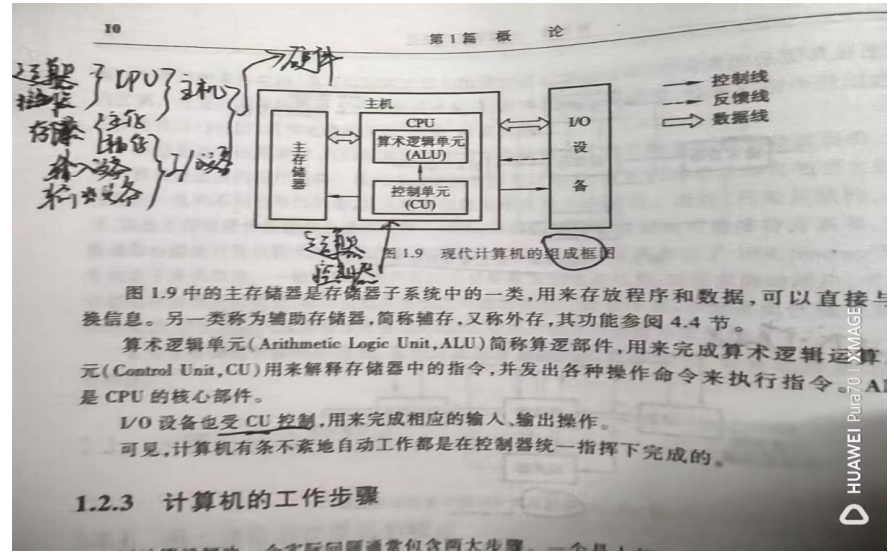 10
第1篇 概 论
硬件
运算器
控制器
CPU
主机
存储器
主存
辅存
输入设备
输出设备
I/O设备
主机
主存储器
CPU
算术逻辑单元
(ALU)
控制单元
(CU)
I/O设备
控制线
反馈线
数据线
运算器
控制器
图 1.9 现代计算机的组成框图
图 1.9 中的主存储器是存储器子系统中的一类,用来存放程序和数据,可以直接与
换信息。另一类称为辅助存储器,简称辅存,又称外存,其功能参阅 4.4 节。
算术逻辑单元(Arithmetic Logic Unit,ALU)简称算逻部件,用来完成算术逻辑运算
元(Control Unit,CU)用来解释存储器中的指令,并发出各种操作命令来执行指令。AL
是 CPU 的核心部件。
I/O 设备也受 CU 控制,用来完成相应的输入、输出操作。
可见,计算机有条不紊地自动工作都是在控制器统一指挥下完成的。
1.2.3 计算机的工作步骤
HUAWEI Pura70 | XMAGE